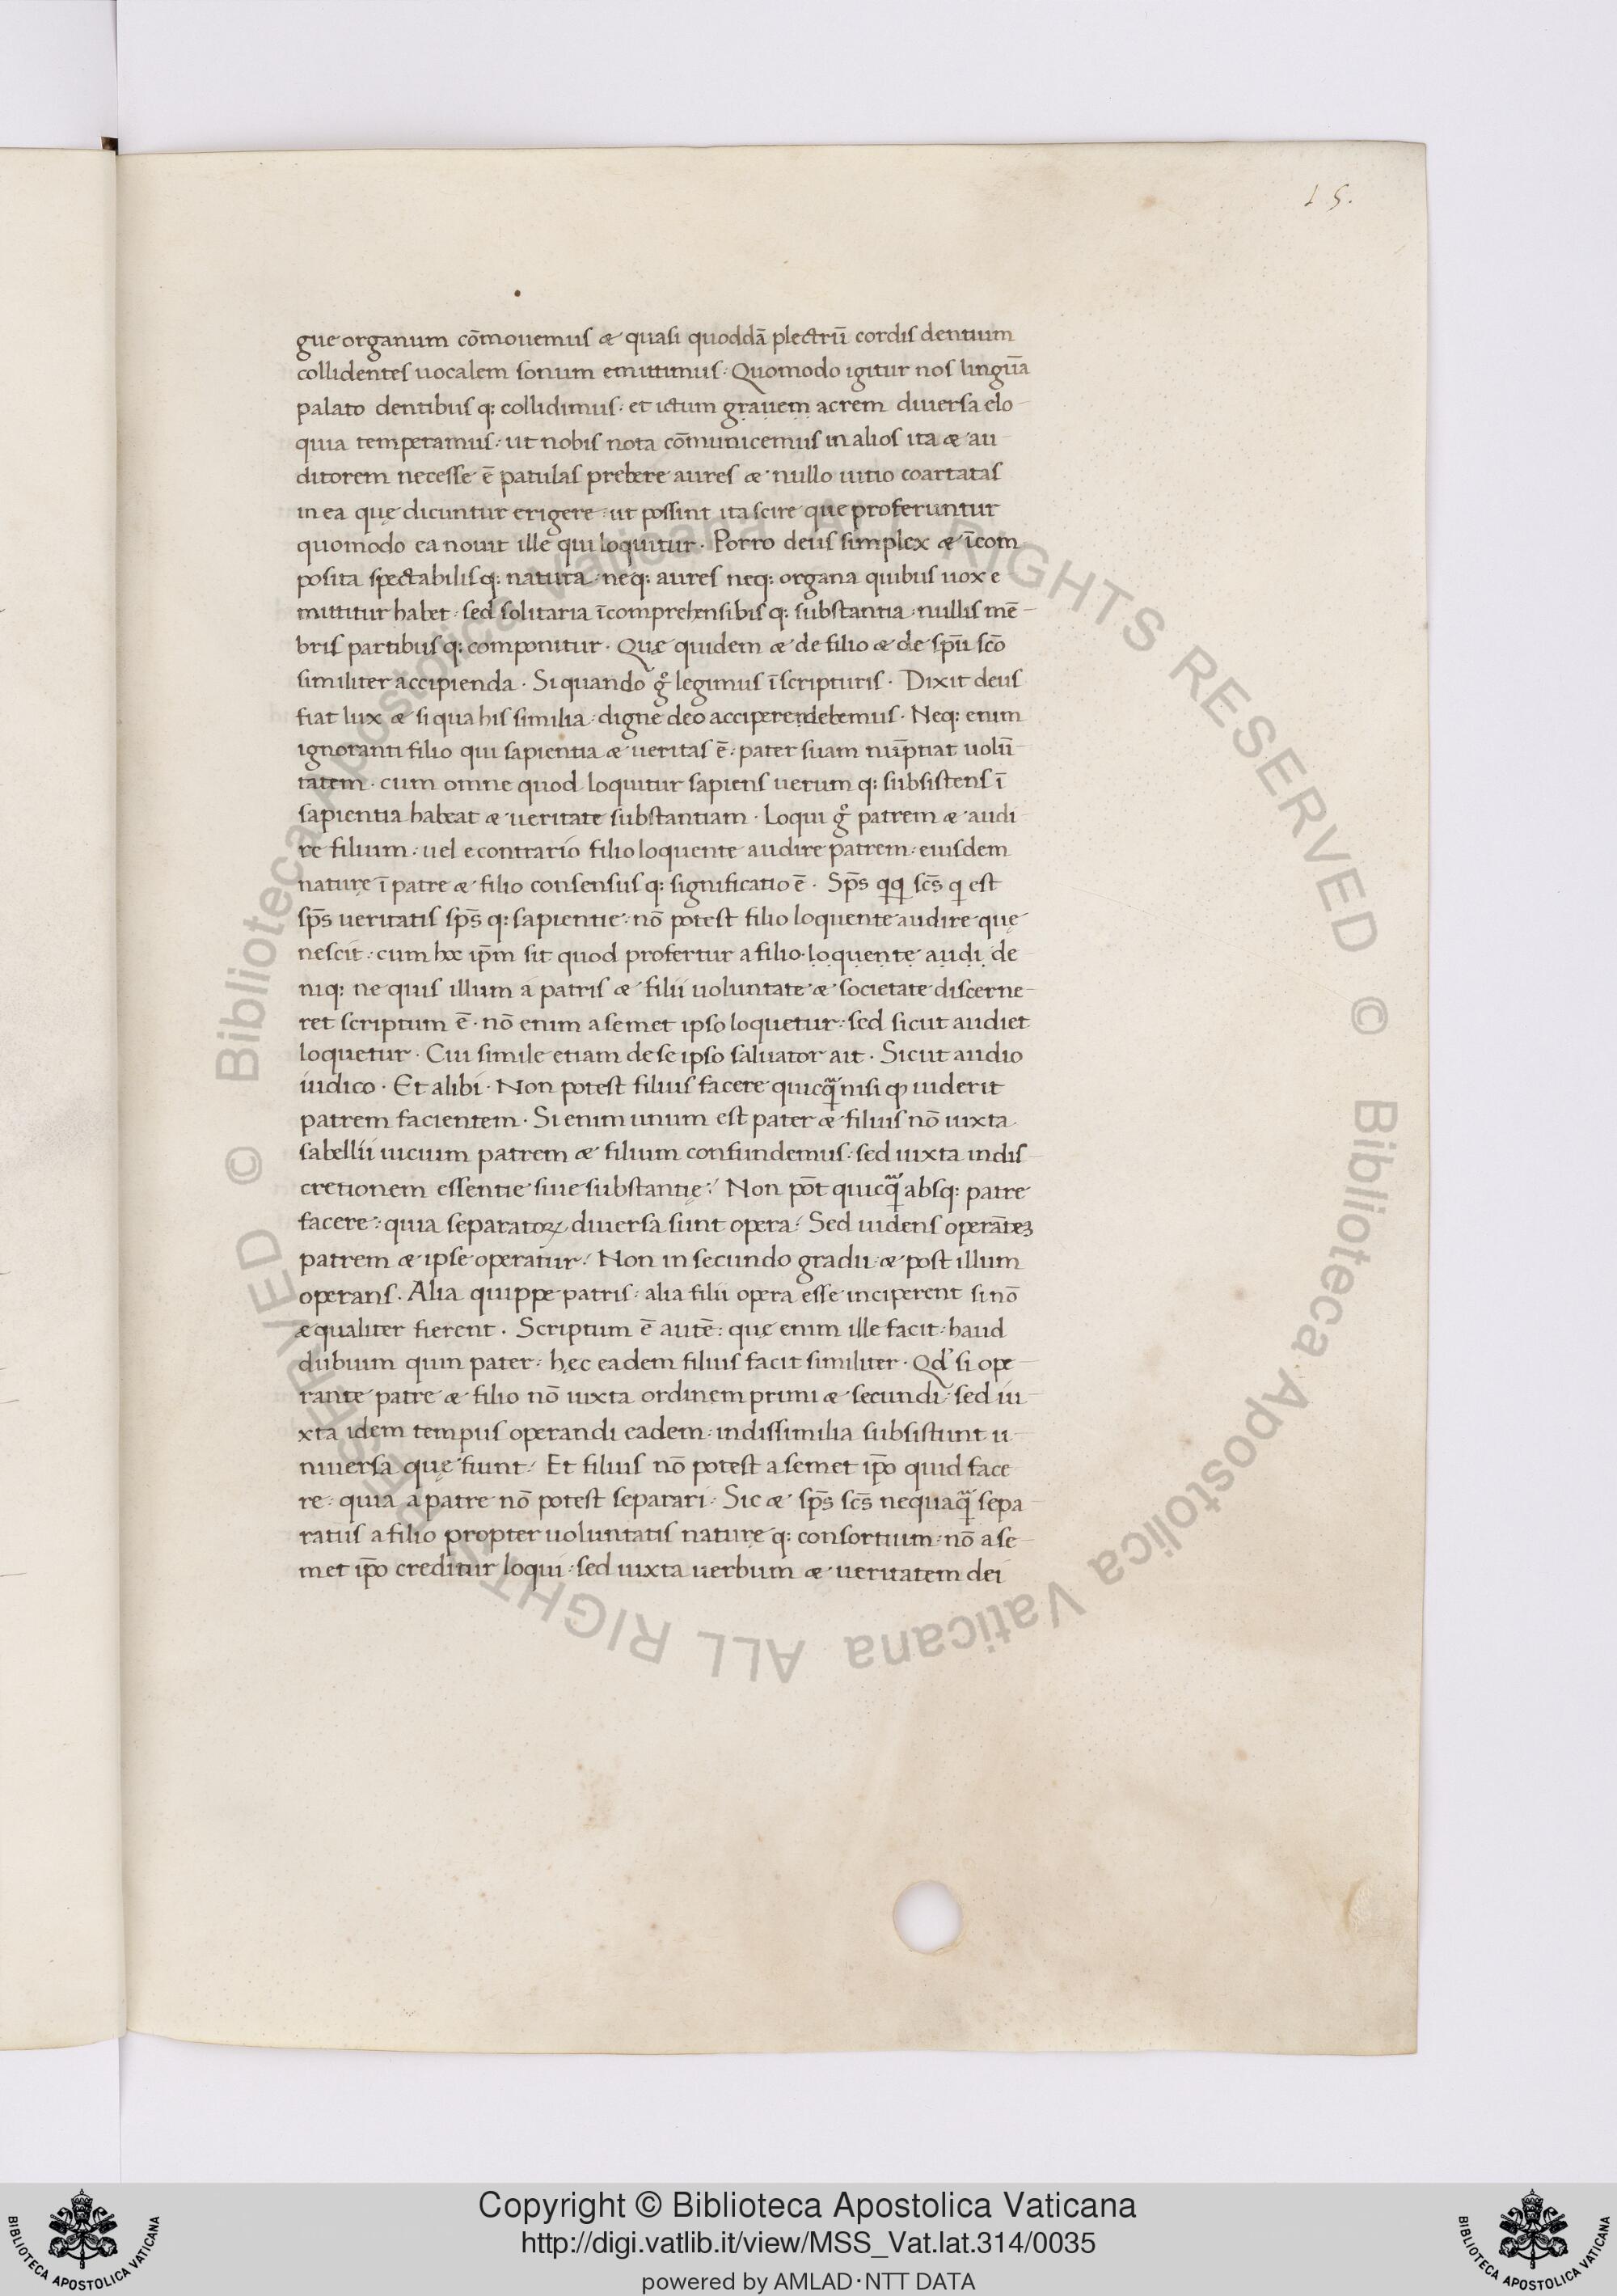 15.
gue organum cōmouemus æ quasi quoddā plectrū cordis dentium
collidentes uocalem sonum emittimus. Quomodo igitur nos linguā
palato dentibus q: collidimus. et ictum grauem acrem diuersa elo
quia temperamus: ut nobis nota cōmunicemus in alios ita æ au
ditorem necesse ē patulas prebere aures æ nullo uitio coartatas
in ea quę dicuntur erigere: ut possint ita scire que proferuntur
quomodo ea nouit ille qui loquitur. Porro deus simplex æ īcom
posita spectabilisq: natura: neq: aures neq: organa quibus uox e
mittitur habet: sed solitaria īcomprehensibis q: substantia: nullis mē
bris partibus q: componitur. Quæ quidem æ de filio æ de spū scō
similiter accipienda. Si quando g° legimus ī scripturis. Dixit deus
fiat lux æ si qua his similia: digne deo accipere debemus. Neq: enim
ignoranti filio qui sapientia æ ueritas ē: pater suam nūptiat uolū
tatem. cum omne quod loquitur sapiens uerum q: subsistens ī
sapientia habeat æ ueritate substantiam. Loqui g° patrem æ audi
re filium: uel e contrario filio loquente audire patrem: eiusdem
naturę ī patre æ filio consensus q: significatio ē. Sp̄s qq scs̄ q est
sp̄s ueritatis sp̄s q: sapientie: nō potest filio loquente audire quę
nescit: cum hoc ip̄m sit quod profertur a filio. loquente audi de
niq: ne quis illum a patris æ filii uoluntate æ societate discerne
ret scriptum ē. nō enim a semet ipso loquetur: sed sicut audiet
loquetur. Cui simile etiam de se ipso saluator ait. Sicut audio
iudico. Et alibi. Non potest filius facere quicq̄ nisi qď uiderit
patrem facientem. Si enim unum est pater æ filius nō iuxta
sabellii uicium patrem æ filium confundemus: sed iuxta indis
cretionem essentie siue substantię: Non pōt quicq̄ absq: patre
facere: quia separatoꝝ diuersa sunt opera: Sed uidens operāteꝫ
patrem æ ipse operatur: Non in secundo gradu æ post illum
operans. Alia quippe patris: alia filii opera esse inciperent si nō
æqualiter fierent. Scriptum ē autē: quę enim ille facit: haud
dubium quin pater: hęc eadem filius facit similiter. Qd' si ope
rante patre æ filio nō iuxta ordinem primi æ secundi: sed iu
xta idem tempus operandi eadem: indissimilia subsistunt u
niuersa quę fiunt: Et filius nō potest a semet ip̄o quid face
re: quia a patre nō potest separari: Sic æ sp̄s scs̄ nequaq̄ sepa
ratus a filio propter uoluntatis naturę q: consortium: nō a se
met ip̄o creditur loqui: sed iuxta uerbum æ ueritatem dei
© Biblioteca Apostolica Vaticana ALL RIGHTS RESERVED © Biblioteca Apostolica Vaticana ALL RIGHTS RESERVED
Copyright © Biblioteca Apostolica Vaticana
http://digi.vatlib.it/view/MSS_Vat.lat.314/0035
powered by AMLAD·NTT DATA
BIBLIOTECA APOSTOLICA VATICANA
BIBLIOTECA APOSTOLICA VATICANA